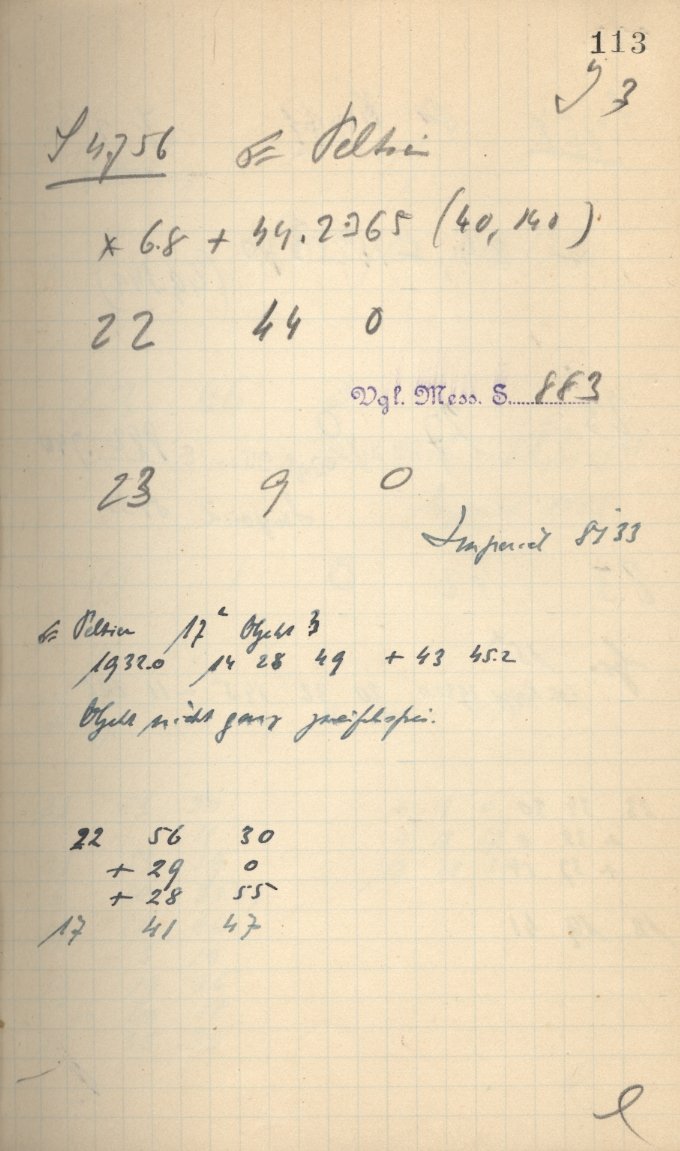 113
3
S 4756 Peltier
* 6.8 + 44.2365 (40, 140)
22 44 0
Vgl. Mess. S. 883
23 9 0
8133
Peltier 17 Objekt 3
1932.0 14 28 49 + 43 45.2
Objekt nicht ganz zweifelsfrei.
22 56 30
+ 29 0
+ 28 55
17 41 47